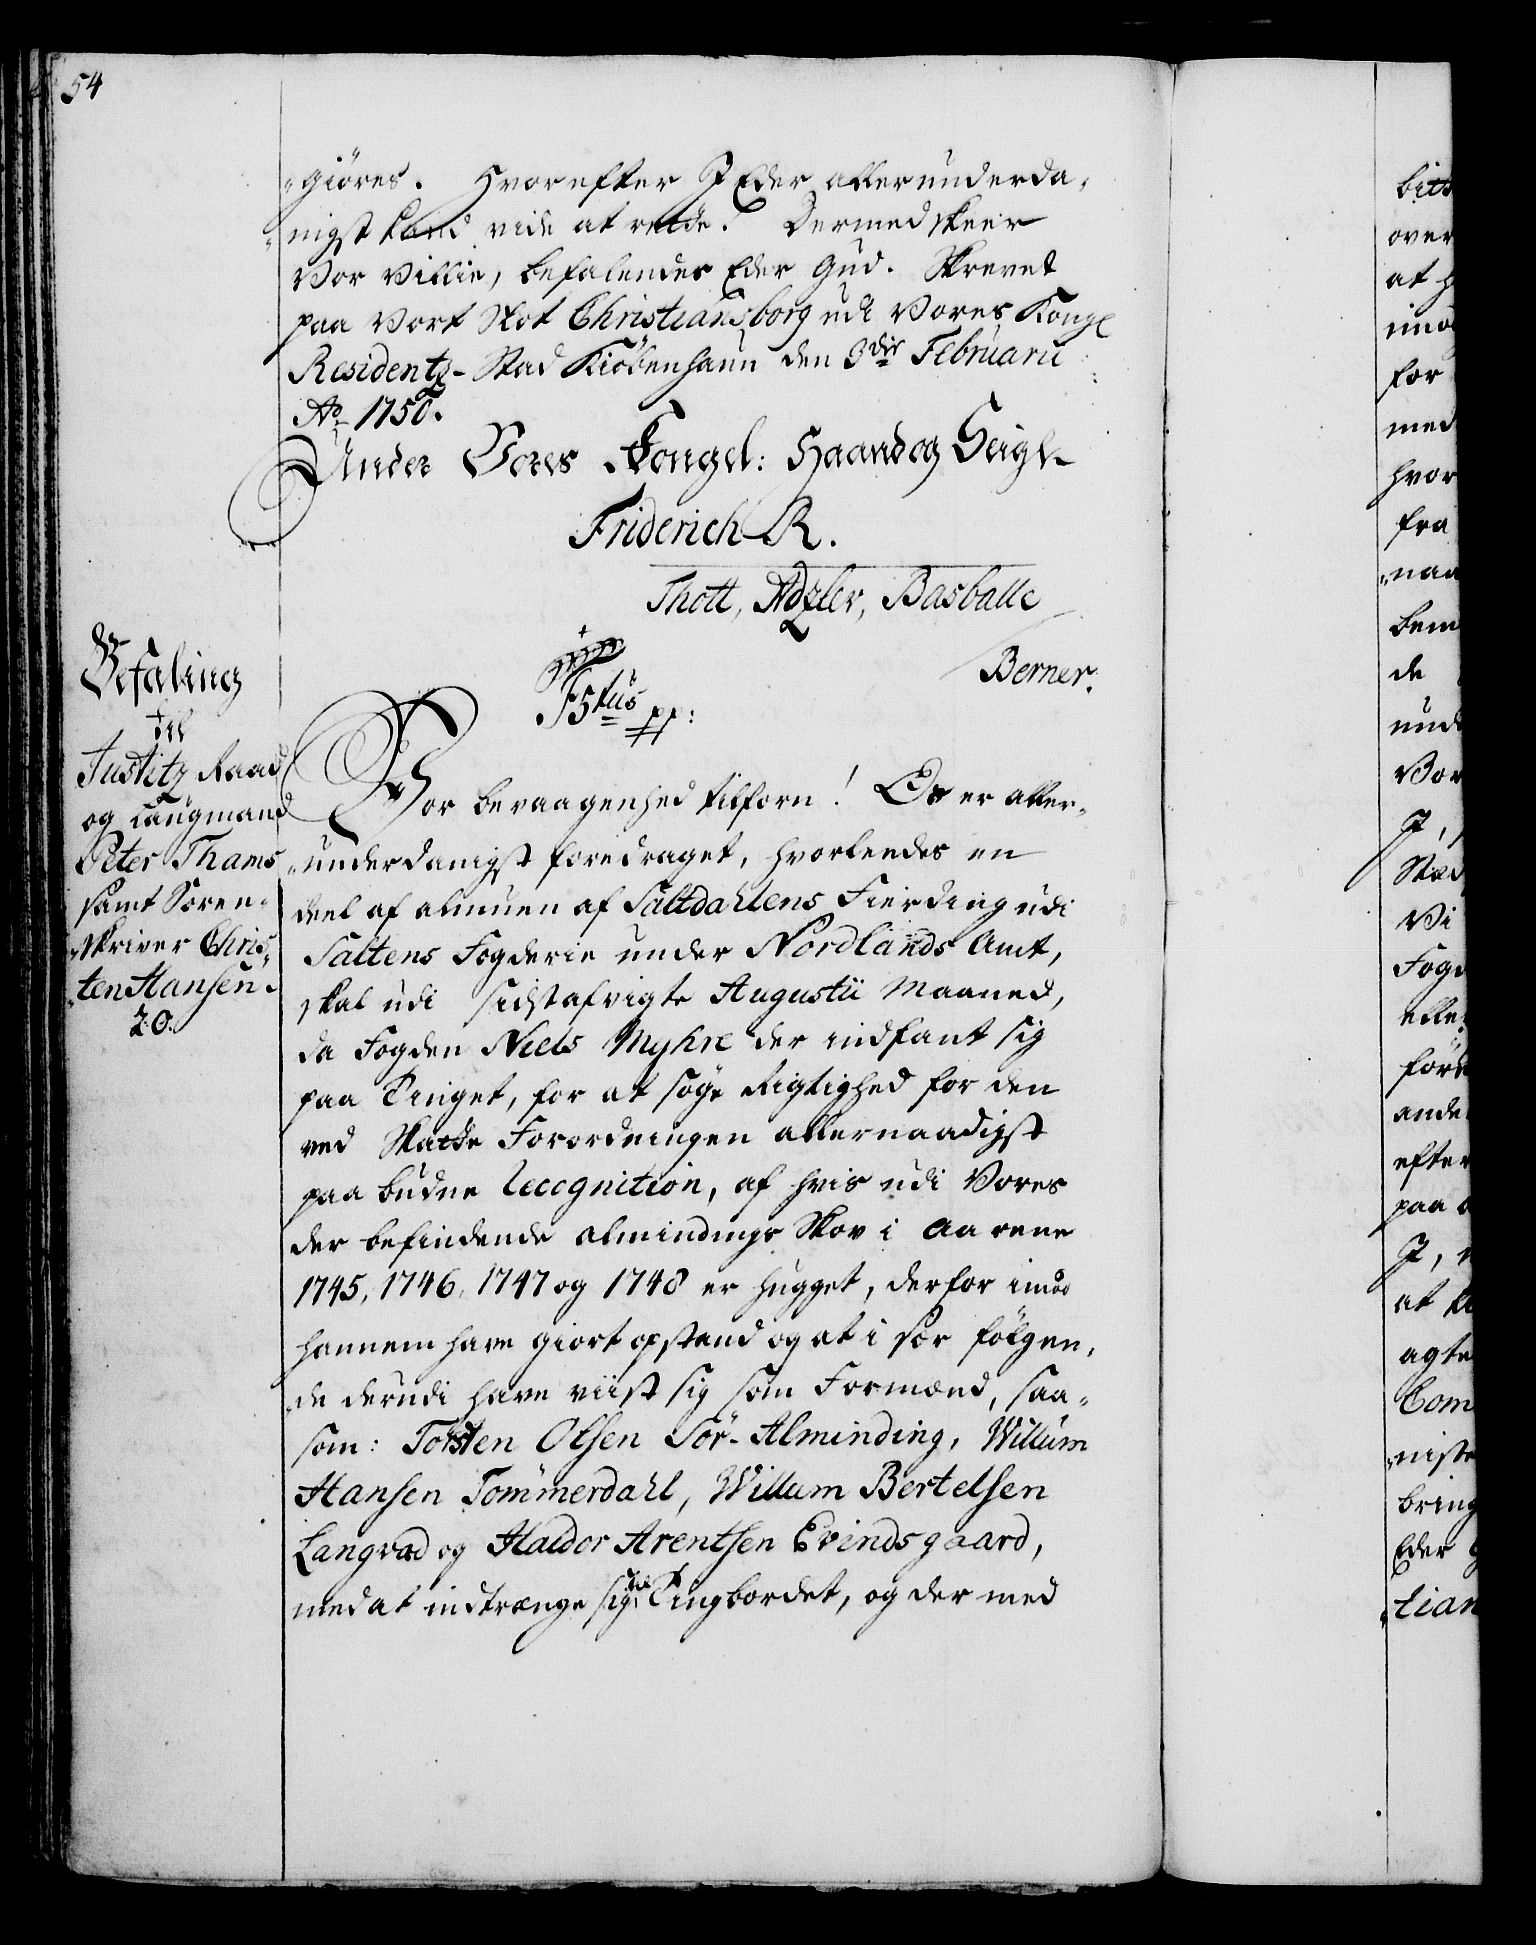 54
„giöres. Hvorefter I Eder allerunderda„
„nigst haver vide at rette. Dermed skeer
Vor Villie, befalendes Eder Gud. Skrevet
paa Vort Slot Christiansborg udi Vores Kongl
Residentz-Stad Kiöbenhaun den 3die Februarii
Ao 1750.
Under Vores Kongel: Haand og Seigl.
Friderich R.
Thott, Adzler, Basballe
Berner.
Befaling
til
Justitz Raad
og Laugmand
Peter Thams
samt Soren„
„skriver Chris„
„ten Hansen.
20.
F5tus pp:
Vor bevaagenhed tilforn! Os er aller„
„underdanigst foredraget, hvorledes en
deel af almuen af Saltdahlens Fierding udi
Saltens Fogderie under Nordlands Amt,
skal udi sidstafvigte Augustii Maaned,
da Fogden Niels Myhre der indfant sig
paa Tinget, for at söge Rigtighed for den
ved Skatte Forordningen allernaadigst
paabudne Recognition, af hvis udi Vores
der befindende Almindings Skov i Aarene
1745, 1746, 1747 og 1748 er hugget, derfor imod
hannem have giort opstand og at i sær fölgen„
„de derudi have viist sig som Formænd, saa„
som: Torsten Olsen Sör-Alminding, Willum
Hansen Tömmerdahl, Willum Bertelsen
Langvad og Haldor Arentsen Evindsgaard,
med at indtrænge sig til Tingbordet, og der med
over
at
for
med
hvor
fra
„naa
bem
de
und
Vor
I,
Vi
Fogd
elle
ande
efter
paa
I,
at
agte
Com
„niste
bring
Eder
„tian